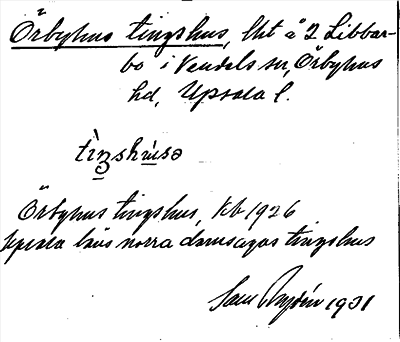 Örbyhus tingshus, lht å 2 Libbar-
bo i Vendels sn, Örbyhus
hd, Upsala l.
tìŋshùsə
Örbyhus tingshus, Kb 1926
Upsala läns norra domsagas tingshus
Sam Rydén 1931